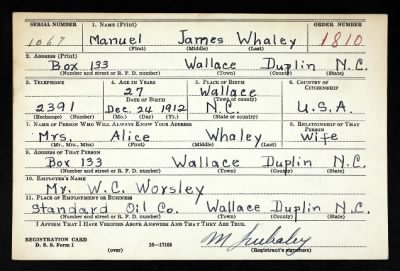 SERIAL NUMBER 1. NAME (Print) ORDER NUMBER
1067 Manuel James Whaley 1810
(First) (Middle) (Last)
2. ADDRESS (Print)
Box 133 Wallace Duplin N.C.
(Number and street or R. F. D. number) (Town) (County) (State)
3. TELEPHONE 4. AGE IN YEARS 5. PLACE OF BIRTH 6. COUNTRY OF CITIZENSHIP
27 Wallace
DATE OF BIRTH (Town or county)
2391 Dec. 24 1912 N.C. U.S.A.
(Exchange) (Number) (Mo.) (Day) (Yr.) (State or country)
7. NAME OF PERSON WHO WILL ALWAYS KNOW YOUR ADDRESS 8. RELATIONSHIP OF THAT PERSON
Mrs. Alice Whaley Wife
(Mr., Mrs., Miss) (First) (Middle) (Last)
9. ADDRESS OF THAT PERSON
Box 133 Wallace Duplin N.C.
(Number and street or R. F. D. number) (Town) (County) (State)
10. EMPLOYER'S NAME
Mr. W. C. Worsley
11. PLACE OF EMPLOYMENT OR BUSINESS
Standard Oil Co. Wallace Duplin N.C.
(Number and street or R. F. D. number) (Town) (County) (State)
I AFFIRM THAT I HAVE VERIFIED ABOVE ANSWERS AND THAT THEY ARE TRUE.
REGISTRATION CARD
D. S. S. Form 1 (over) 16—17105 (Registrant's signature)